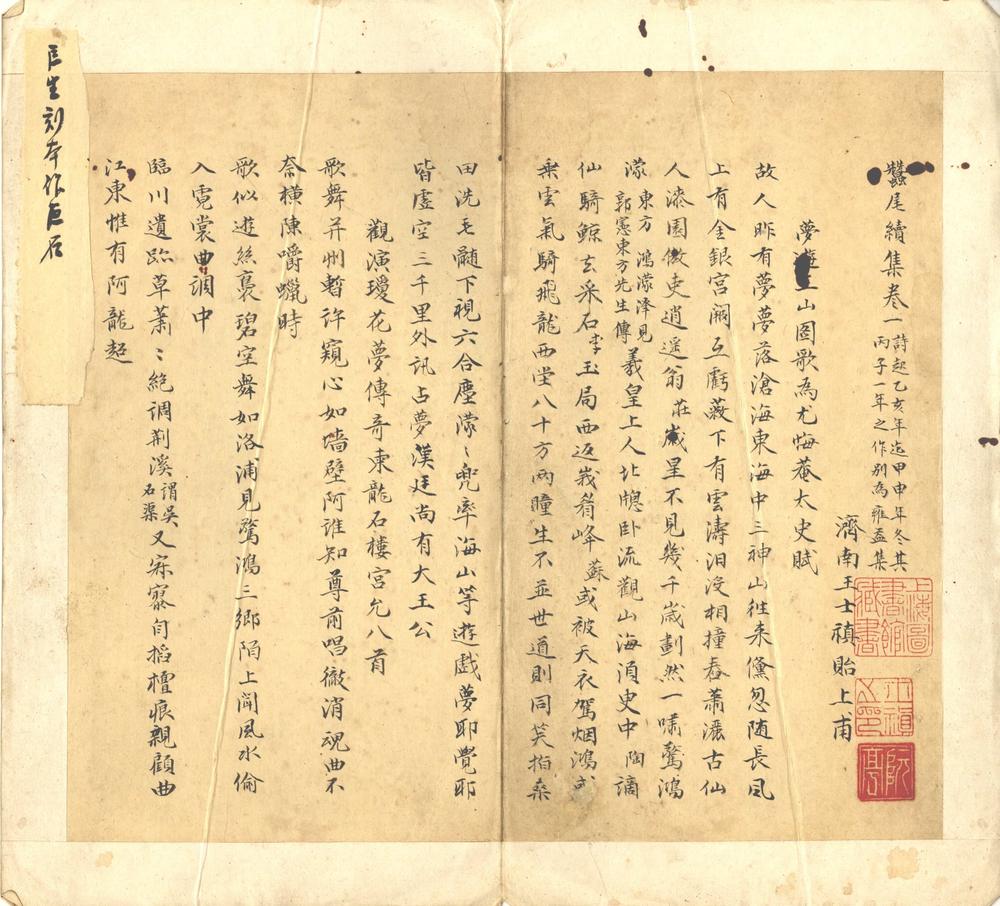 蠶尾續集卷一 詩起乙亥年迄甲申年冬其
丙子一年之作別為雍益集
濟南王士禛貽上甫
夢遊三山圖歌為尤悔菴太史賦
故人昨有夢夢落滄海東海中三神山往來儵忽随長風
上有金銀宮闕互虧蔽下有雲濤汨没相撞舂蕭灑古仙
人漆園傲吏逍遥翁 莊 歲星不見幾千歲劃然一嘯驚鴻
濛 東方 鴻濛澤見
郭憲東方先生傳 羲皇上人北牕卧流觀山海湏史中 陶 謫
仙騎鯨去采石 李 玉局西返峩睂峰 蘇 或被天衣駕烟鴻或
乗雲氣騎飛龍西堂八十方兩瞳生不並世道則同笑指桑
田洗毛髄下視六合塵濛〻兜率海山等遊戲夢耶覺耶
皆虚空三千里外訊占夢漢廷尚有大王公
觀演瓊花夢傳奇柬龍石樓宮允八首
歌舞并州暫許窺心如墻壁阿誰知尊前唱徹消魂曲不
奈橫陳嚼蠟時
歌似遊絲裊碧空舞如洛浦見驚鴻三鄉陌上聞風水偷
入霓裳曲調中
臨川遺跡草蕭〻絕調荆溪 謂吳
石渠 又寂寥自搯檀痕親顧曲
江東惟有阿龍超
上海圖書館藏書